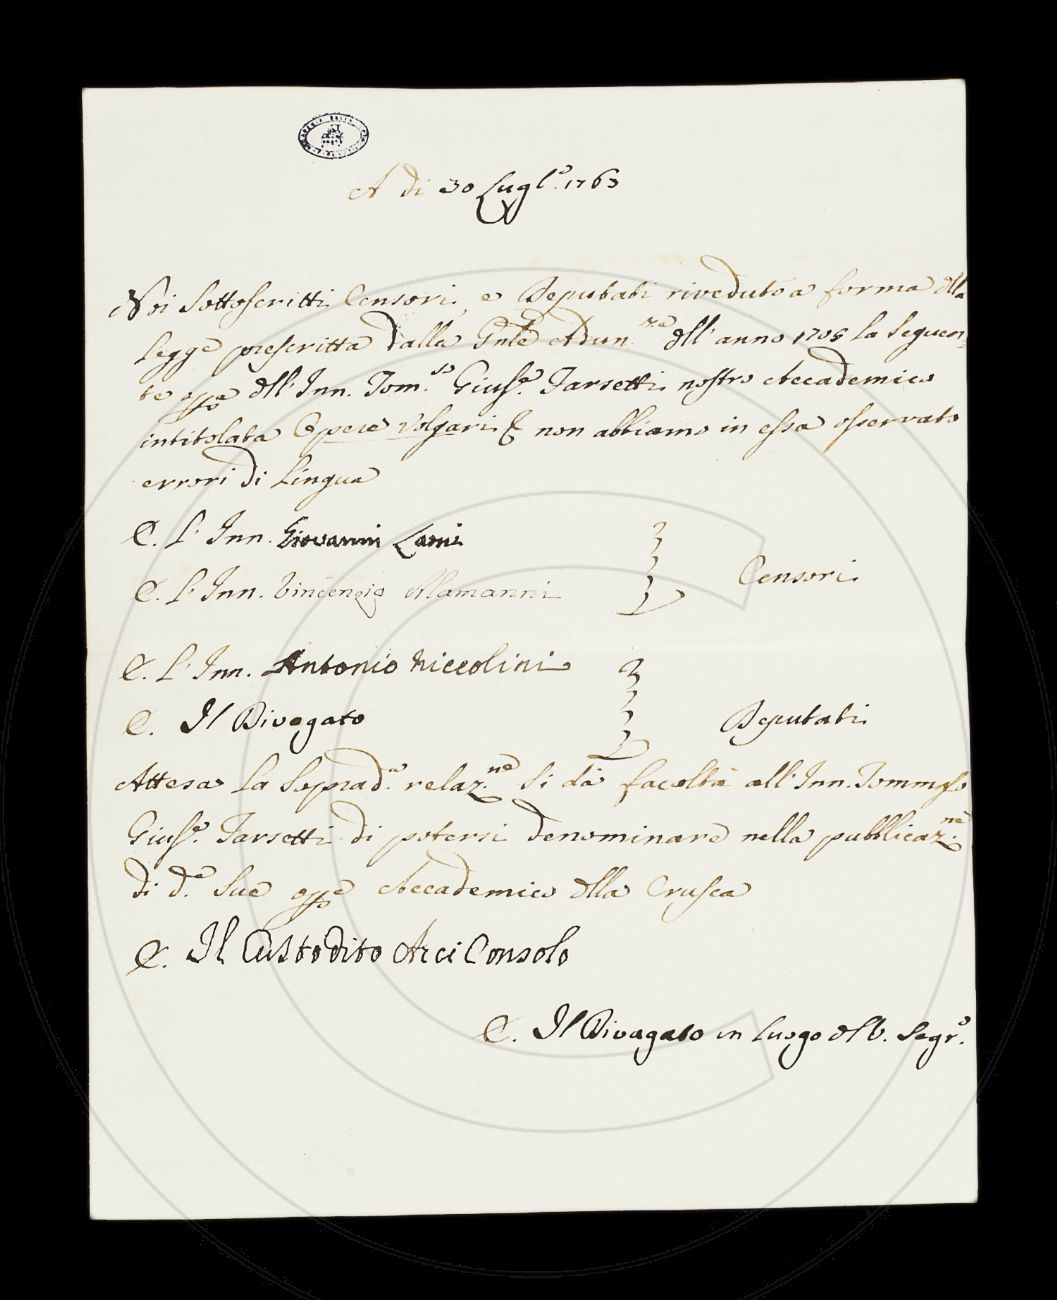 A di 30 Lugl.o 1763
Noi Sottoscritti Censori, e Deputati riveduto a forma dlla
Legge prescritta dalla Gnle Adun.za dll' anno 1705 la Seguen-
te oppa dll' Inn. Tom.so Gius.e Farsetti nostro Accademico
intitolata Opere Volgari & non abbiamo in essa osservato
errori di Lingua
C. L' Inn. Giovanni Lami
C. L' Inn. Vincenzio Alamanni
Censori
C. L' Inn. Antonio Niccolini
C. Il Divagato
Deputati
Attesa la Soprad.a relaz.ne Si dà facoltà all' Inn. Tommaso
Gius.e Farsetti di potersi denominare nella pubblicaz.ne
di d.e Sue oppe Accademico dlla Crusca
C. Il Custodito Arciconsolo
C. Il Divagato in luogo dl V. Segr.o